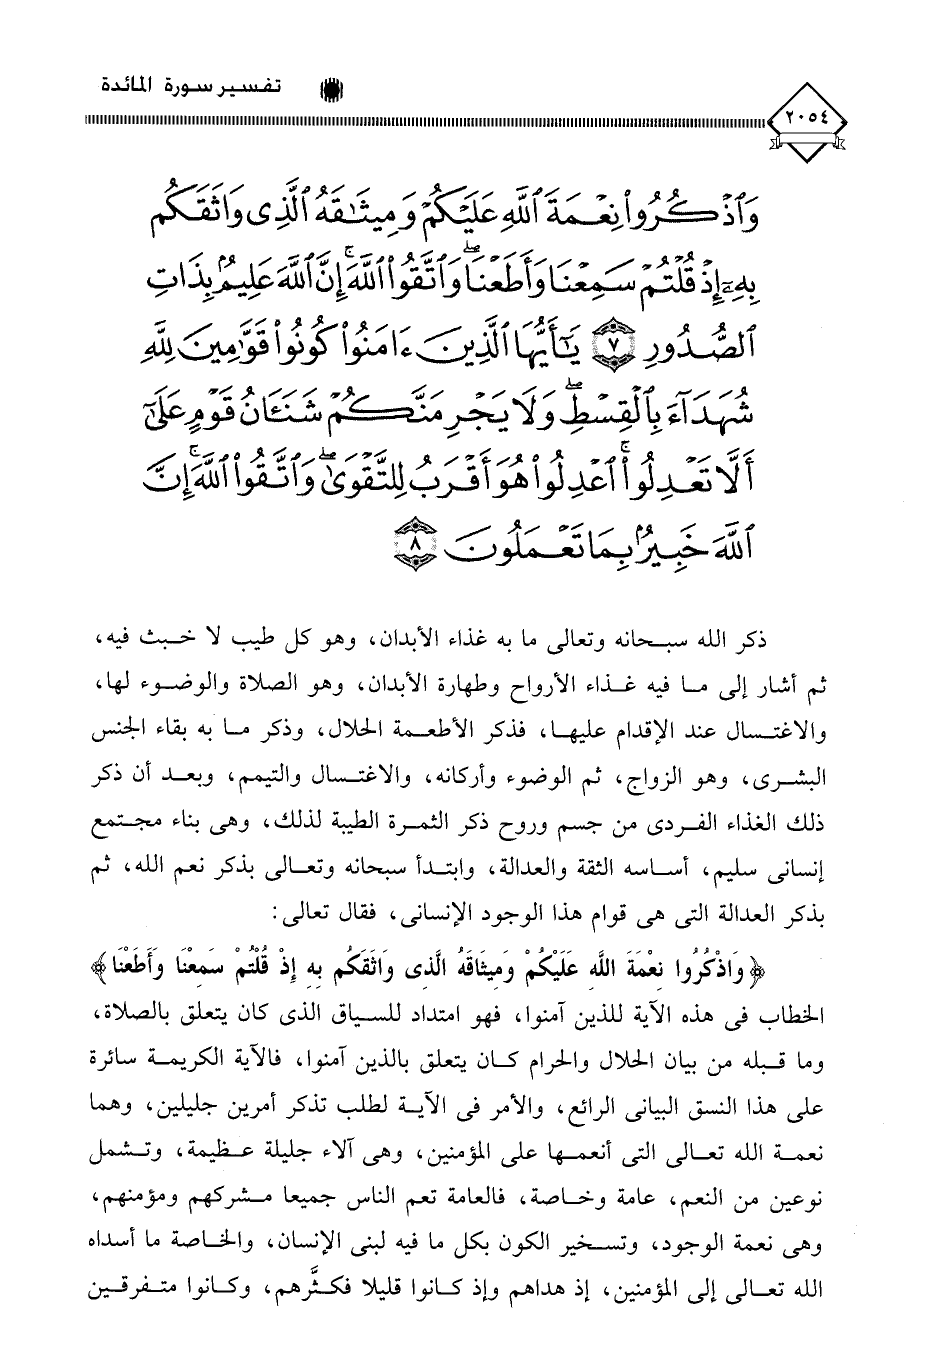 تفسير سورة المائدة
٢٠٥٤
وَٱذۡكُرُواْ نِعۡمَةَ ٱللَّهِ عَلَيۡكُمۡ وَمِيثَٰقَهُ ٱلَّذِى وَاثَقَكُم
بِهِۦٓ إِذۡ قُلۡتُمۡ سَمِعۡنَا وَأَطَعۡنَاۖ وَٱتَّقُواْ ٱللَّهَۚ إِنَّ ٱللَّهَ عَلِيمُۢ بِذَاتِ
ٱلصُّدُورِ ٧ يَٰٓأَيُّهَا ٱلَّذِينَ ءَامَنُواْ كُونُواْ قَوَّٰمِينَ لِلَّهِ
شُهَدَآءَ بِٱلۡقِسۡطِۖ وَلَا يَجۡرِمَنَّكُمۡ شَنَـَٔانُ قَوۡمٍ عَلَىٰٓ
أَلَّا تَعۡدِلُواْۚ ٱعۡدِلُواْ هُوَ أَقۡرَبُ لِلتَّقۡوَىٰۖ وَٱتَّقُواْ ٱللَّهَۚ إِنَّ
ٱللَّهَ خَبِيرُۢ بِمَا تَعۡمَلُونَ ٨
ذكر الله سبحانه وتعالى ما به غذاء الأبدان، وهو كل طيب لا خبث فيه،
ثم أشار إلى ما فيه غذاء الأرواح وطهارة الأبدان، وهو الصلاة والوضوء لها،
والاغتسال عند الإقدام عليها، فذكر الأطعمة الحلال، وذكر ما به بقاء الجنس
البشرى، وهو الزواج، ثم الوضوء وأركانه، والاغتسال والتيمم، وبعد أن ذكر
ذلك الغذاء الفردى من جسم وروح ذكر الثمرة الطيبة لذلك، وهى بناء مجتمع
إنسانى سليم، أساسه الثقة والعدالة، وابتدأ سبحانه وتعالى بذكر نعم الله، ثم
بذكر العدالة التى هى قوام هذا الوجود الإنسانى، فقال تعالى:
﴿وَاذْكُرُوا نِعْمَةَ اللَّهِ عَلَيْكُمْ وَمِيثَاقَهُ الَّذِى وَاثَقَكُم بِهِ إِذْ قُلْتُمْ سَمِعْنَا وَأَطَعْنَا﴾
الخطاب فى هذه الآية للذين آمنوا، فهو امتداد للسياق الذى كان يتعلق بالصلاة،
وما قبله من بيان الحلال والحرام كان يتعلق بالذين آمنوا، فالآية الكريمة سائرة
على هذا النسق البيانى الرائع، والأمر فى الآية لطلب تذكر أمرين جليلين، وهما
نعمة الله تعالى التى أنعمها على المؤمنين، وهى آلاء جليلة عظيمة، وتشمل
نوعين من النعم، عامة وخاصة، فالعامة تعم الناس جميعا مشركهم ومؤمنهم،
وهى نعمة الوجود، وتسخير الكون بكل ما فيه لبنى الإنسان، والخاصة ما أسداه
الله تعالى إلى المؤمنين، إذ هداهم وإذ كانوا قليلا فكثَّرهم، وكانوا متفرقين